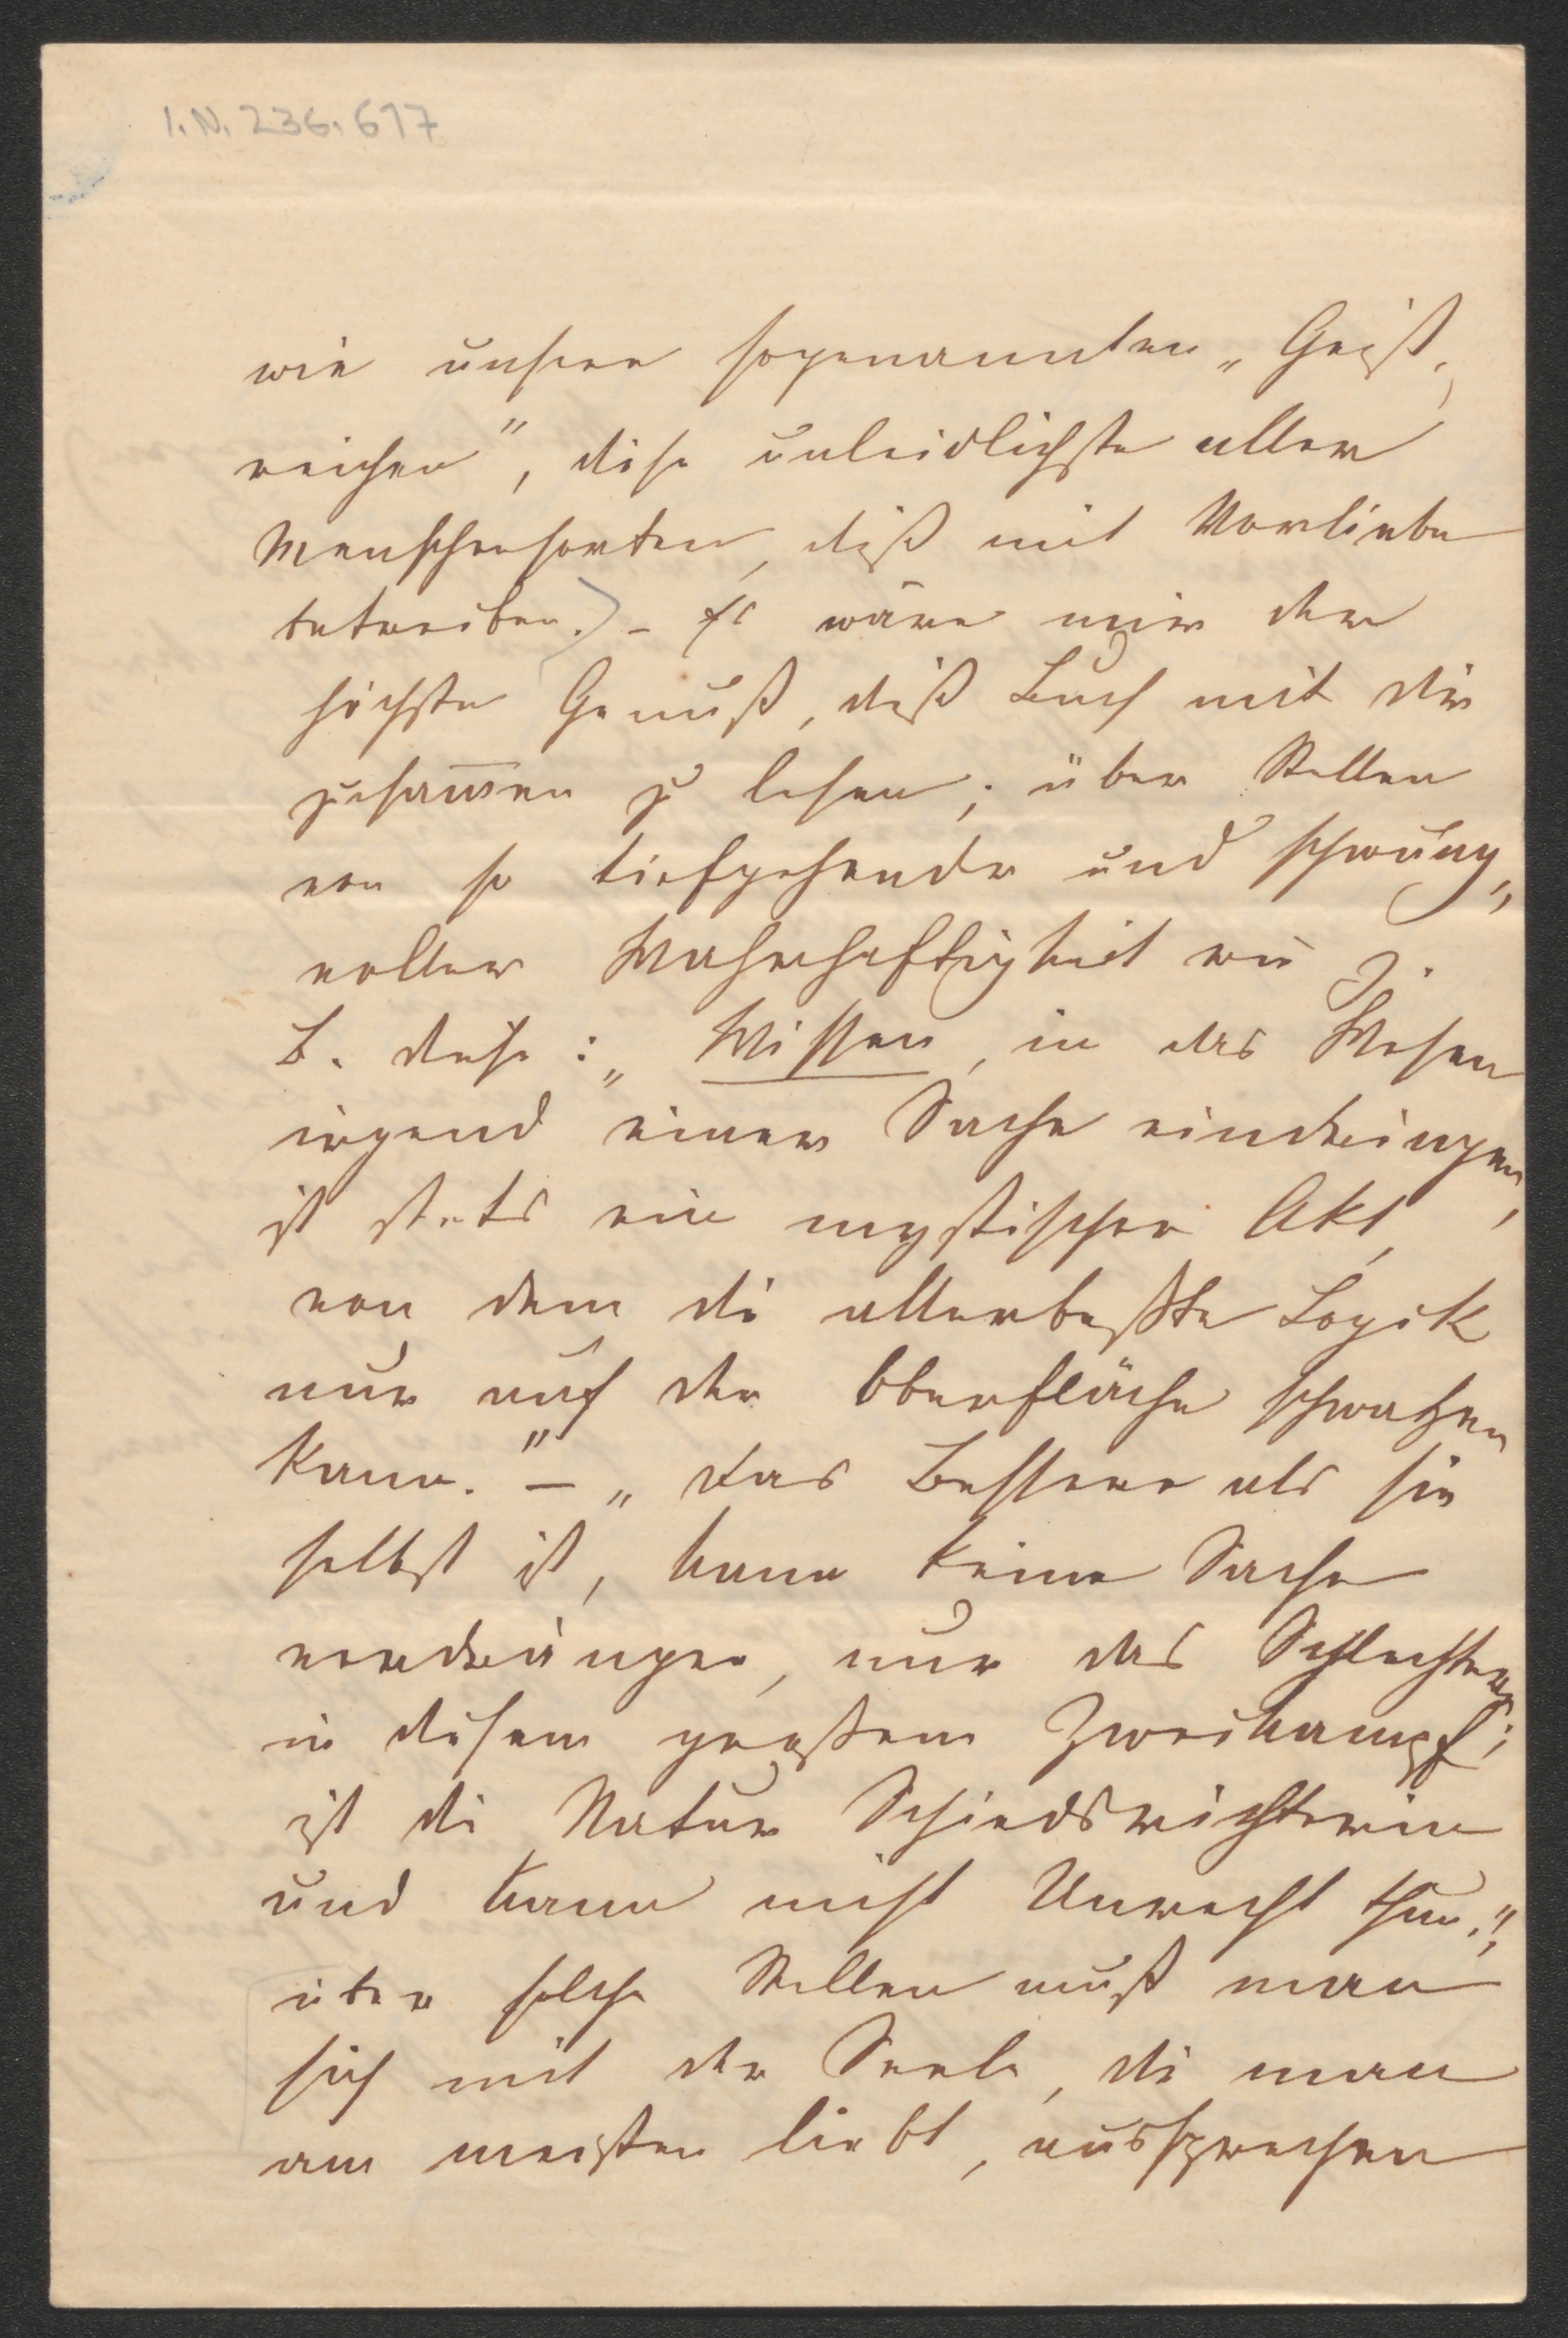 I.N. 236.617
wie unsere sogenannten „Geist-
reichen", dise unleidlichste aller
Menschensorten, diß mit Vorliebe
betreiben.) – Es wäre mir der
höchste Genuß, diß Buch mit dir
zusam̅en zu lesen; über Stellen
von so tiefgehender und schwung-
voller Wahrhaftigkeit wie z.
B. dise: „Wissen, in das Wesen
irgend einer Sache eindringen,
ist stets ein mystischer Akt,
von dem di allerbeßte Logik
nur auf der Oberfläche schwatzen
kann." – „Das Bessere als sie
selbst ist, kann keine Sache
verdrängen, nur das Schlechtere;
in disem großem Zweikampf
ist di Natur Schiedsrichterin
und kann nicht Unrecht thun.",
über solche Stellen muß man
sich mit der Seele, di man
am meisten liebt, aussprechen